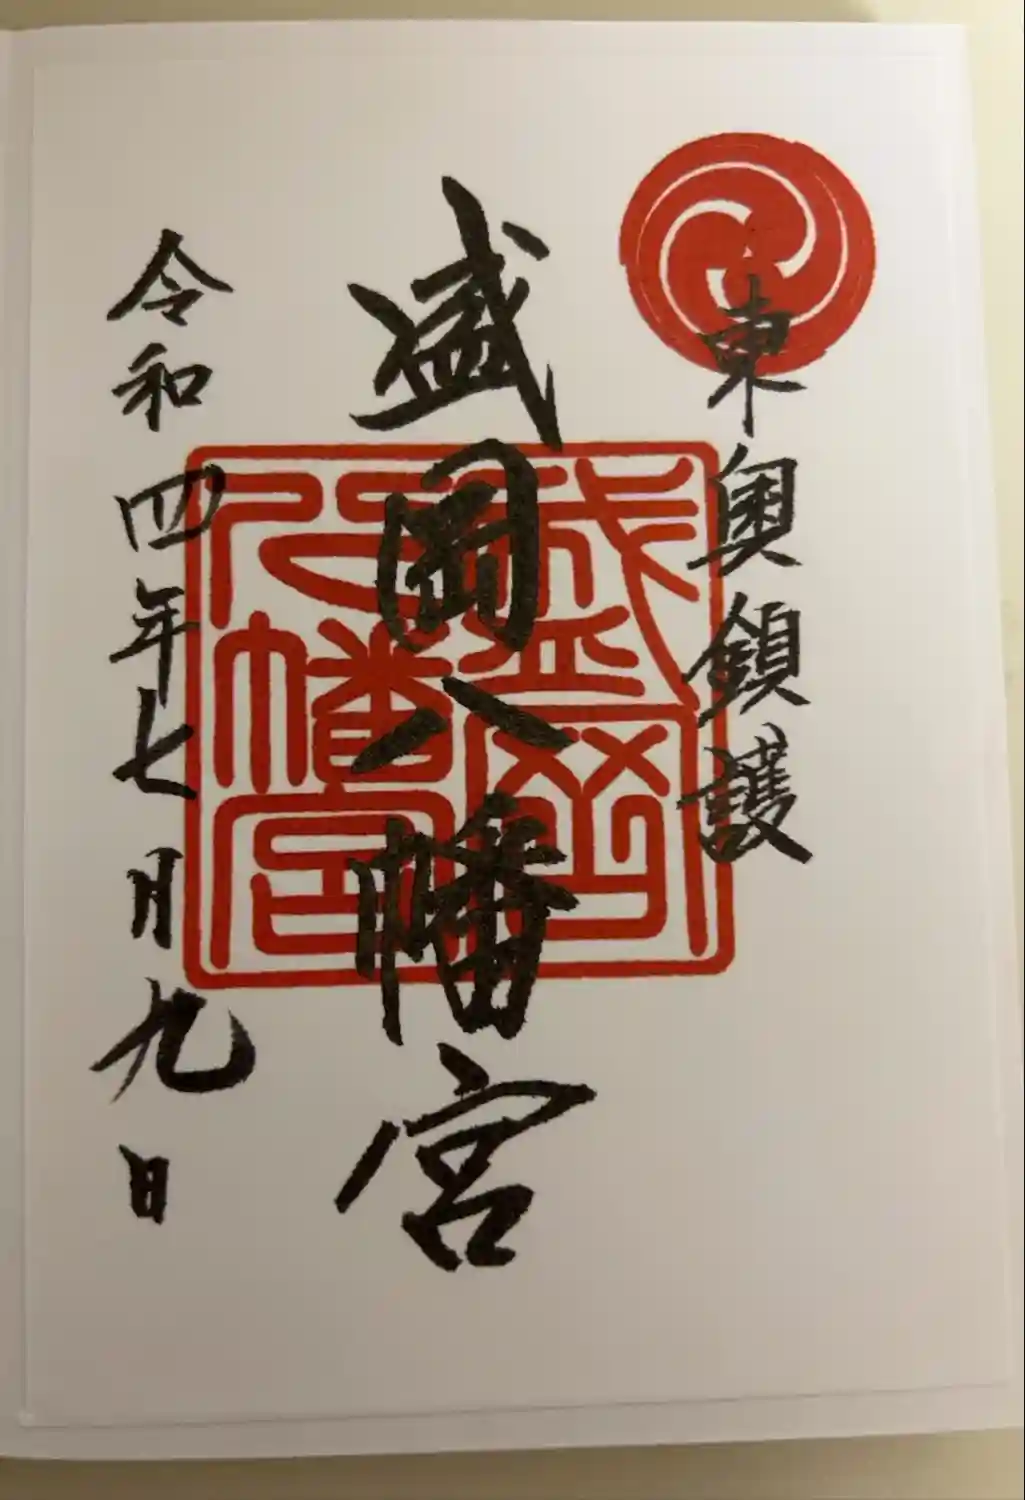 東奥鎮護
盛岡八幡宮
盛岡八幡宮
令和四年七月九日